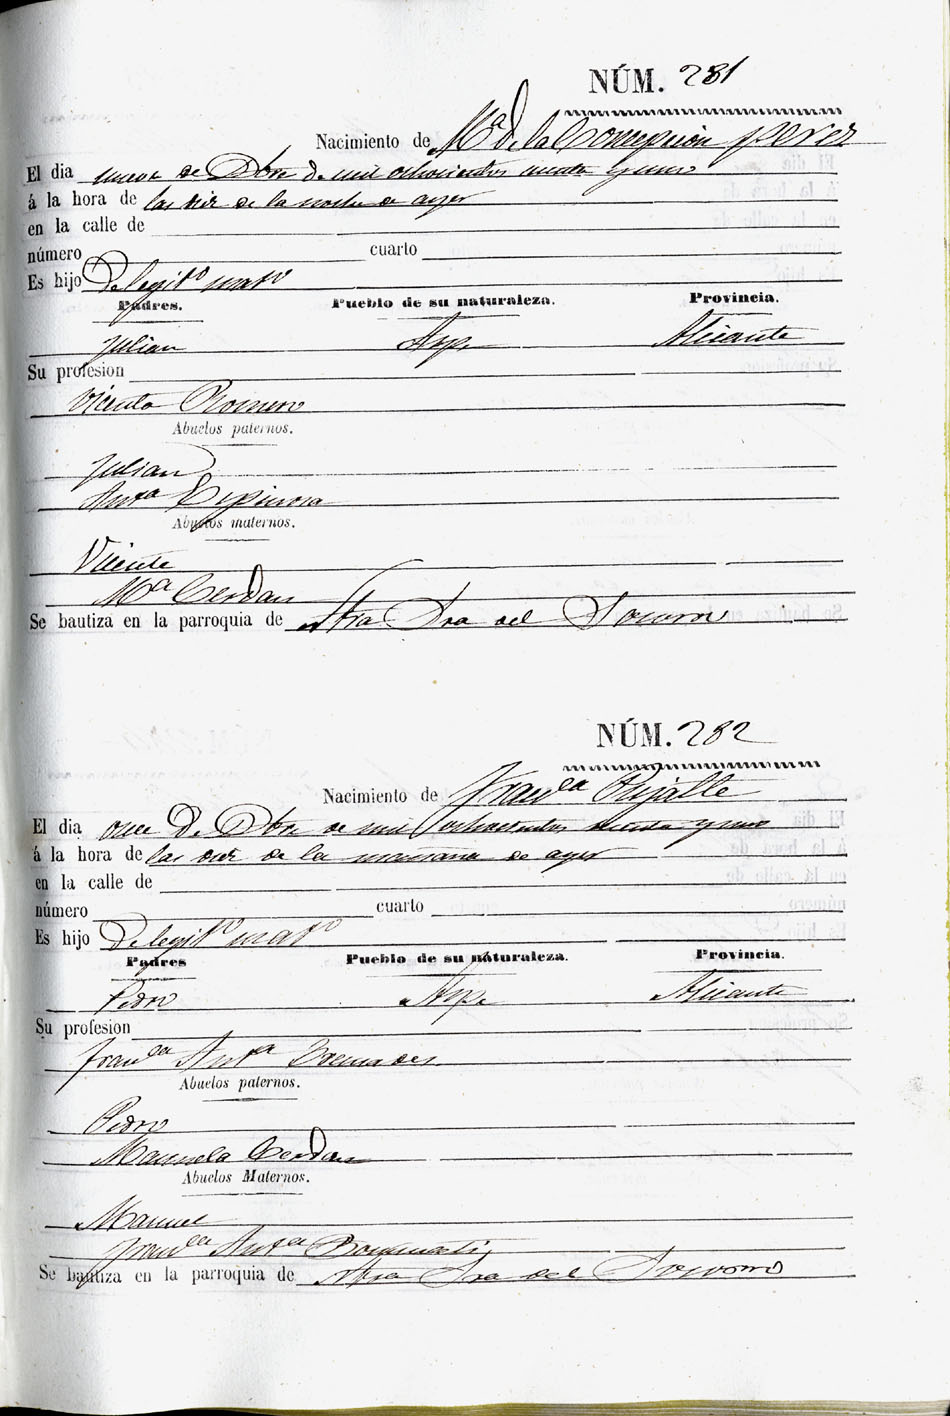 NÚM. 281
Nacimiento de Mª de la Concepcion Perez
El dia nueve de Dbre de mil ochocientos y uno
á la hora de las diez de la noche de ayer
en la calle de
número cuarto
Es hijo De legitº matº
Padres. Pueblo de su naturaleza. Provincia.
Julian Aspe Alicante
Su profesion
Vicenta Romero
Abuelos paternos.
Julian
Antª Espinosa
Abuelos maternos.
Vicente
Mª Cerdan
Se bautiza en la parroquia de Ntra Sra del Socorro
NÚM. 282
Nacimiento de Francᵃ Pujalte
El dia once De Dbre de mil ochocientos y uno
á la hora de las diez de la mañana de ayer
en la calle de
número cuarto
Es hijo De legitº matº
Padres Pueblo de su naturaleza. Provincia.
Pedro Aspe Alicante
Su profesion
Francᵃ Antª
Abuelos paternos.
Pedro
Manuela Cerdan
Abuelos Maternos.
Manuel
Francᵃ Antª
Se bautiza en la parroquia de Ntra Sra del Socorro